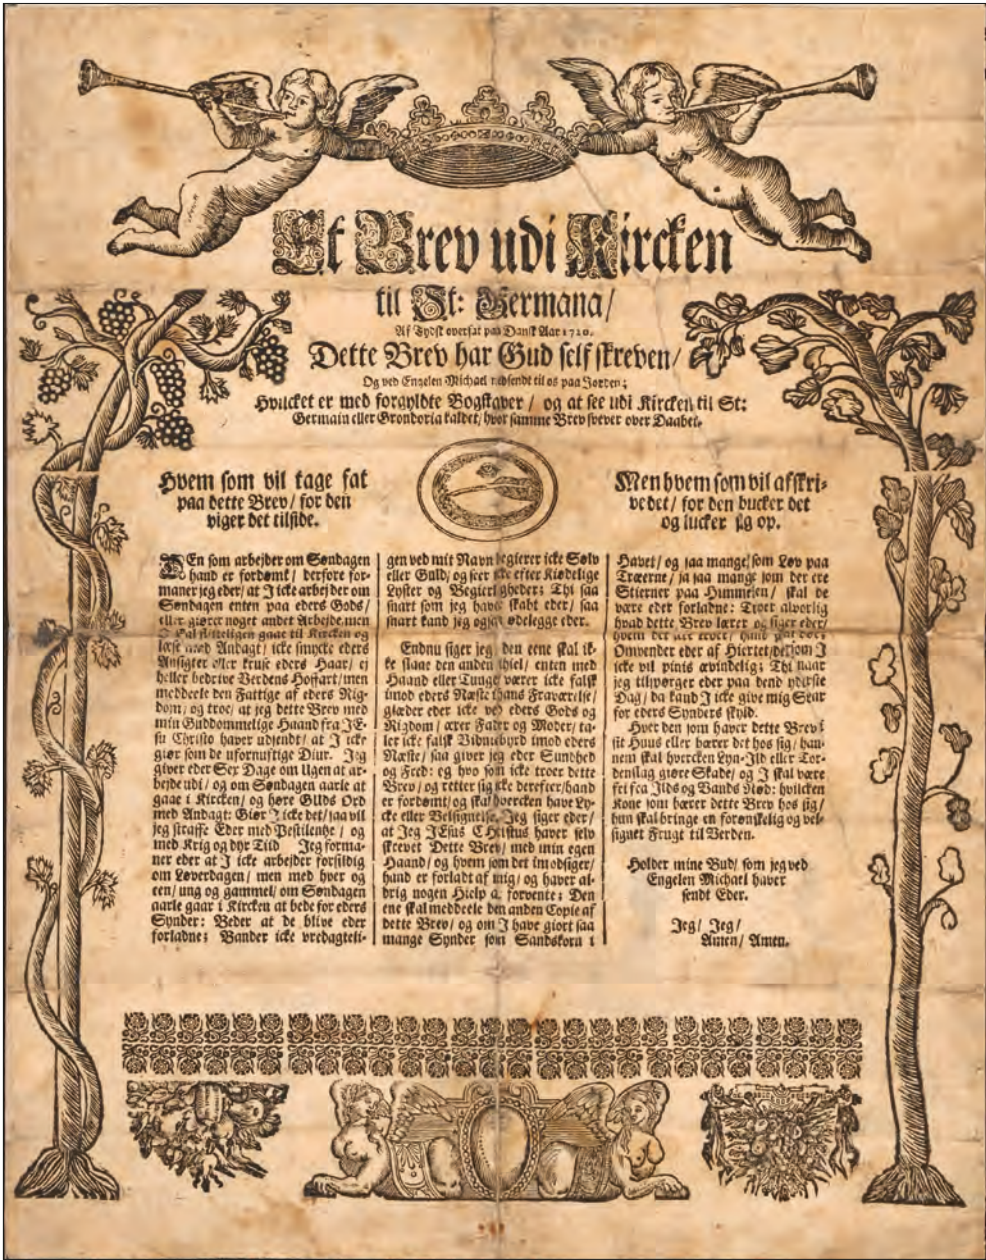 Et Brev udi Kircken
til St: Germana/
Af Tydsk oversat paa Dansk Aar 1720.
Dette Brev har Gud self skreven/
Og ved Engelen Michael nedsendt til os paa Jorden;
Hvilcket er med forgyldte Bogstaver / og at see udi Kircken til St:
Germain eller Grondoria kaldet/ hvor samme Brev svever over Daabet.
Hvem som vil tage fat
paa dette Brev/ for den
viger det tilside.
Men hvem som vil afskri-
ve det/ for den bucker det
og lucker sig op.
DEn som arbejder om Søndagen
hand er fordømt/ derfore for-
maner jeg eder/ at J icke arbejder om
Søndagen enten paa eders Gods/
eller giører noget andet Arbejde, men
J skal flitteligen gaae til Kircken og
læse med Andagt/ icke smycke eders
Ansigter eller kruse eders Haar/ ej
heller bedrive Verdens Hoffart/ men
meddeele den Fattige af eders Rig-
dom; og troe/ at jeg dette Brev med
min Guddommelige Haand fra JE-
su Christo haver udsendt/ at J icke
giør som de ufornuftige Diur. Jeg
giver eder Sex Dage om Ugen at ar-
bejde udi/ og om Søndagen aarle at
gaae i Kircken/ og høre GUds Ord
med Andagt: Giør J icke det/ saa vil
jeg straffe Eder med Pestilentze / og
med Krig og dyr Tiid Jeg forma-
ner eder at J icke arbejder forsildig
om Løverdagen/ men med hver og
een/ ung og gammel/ om Søndagen
aarle gaar i Kircken at bede for eders
Synder: Beder at de blive eder
forladne; Bander icke vredagteli-
gen ved mit Navn begierer icke Sølv
eller Guld/ og seer icke efter Kiødelige
Lyster og Begierligheder; Thi saa
snart som jeg haver skabt eder/ saa
snart kand jeg ogsaa ødelegge eder.
Endnu siger jeg den eene skal ik-
ke slaae den anden ihiel/ enten med
Haand eller Tunge værer icke falsk
imod eders Næste i hans Fraværelse/
glæder eder icke ved eders Gods og
Rigdom/ ærer Fader og Moder/ ta-
ler icke falsk Vidnebyrd imod eders
Næste/ saa giver jeg eder Sundhed
og Fred: og hvo som icke troer dette
Brev/ og retter sig icke derefter/ hand
er fordømt/ og skal hvercken have Ly-
cke eller Velsignelse. Jeg siger eder/
at Jeg JEsus CHristus haver selv
skrevet Dette Brev/ med min egen
Haand/ og hvem som det imodsiger/
hand er forladt af mig/ og haver al-
drig nogen Hielp a forvente; Den
ene skal meddeele den anden Copie af
dette Brev/ og om J have giort saa
mange Synder som Sandskorn i
Havet/ og saa mange/ som Løv paa
Træerne/ ja saa mange som der ere
Stierner paa Himmelen/ skal de
være eder forladne: Troer alvorlig
hvad dette Brev lærer og siger eder/
hvem det icke troer/ hand skal døe;
Omvender eder af Hiertet/ dersom J
icke vil pinis ævindelig; Thi naar
jeg tilspørger eder paa den yderste
Dag/ da kand J icke give mig Svar
for eders Synders skyld.
Hver den som haver dette Brev i
sit Huus eller bærer det hos sig/ han-
nem skal hvercken Lyn-Jld eller Tor-
denslag giøre Skade/ og J skal være
fri fra Jlds og Vands Nød: hvilcken
Kone som bærer dette Brev hos sig/
hun skal bringe en forønskelig og vel-
signet Frugt til Verden.
Holder mine Bud/ som jeg ved
Engelen Michael haver
sendt Eder.
Jeg/ Jeg/
Amen/ Amen.